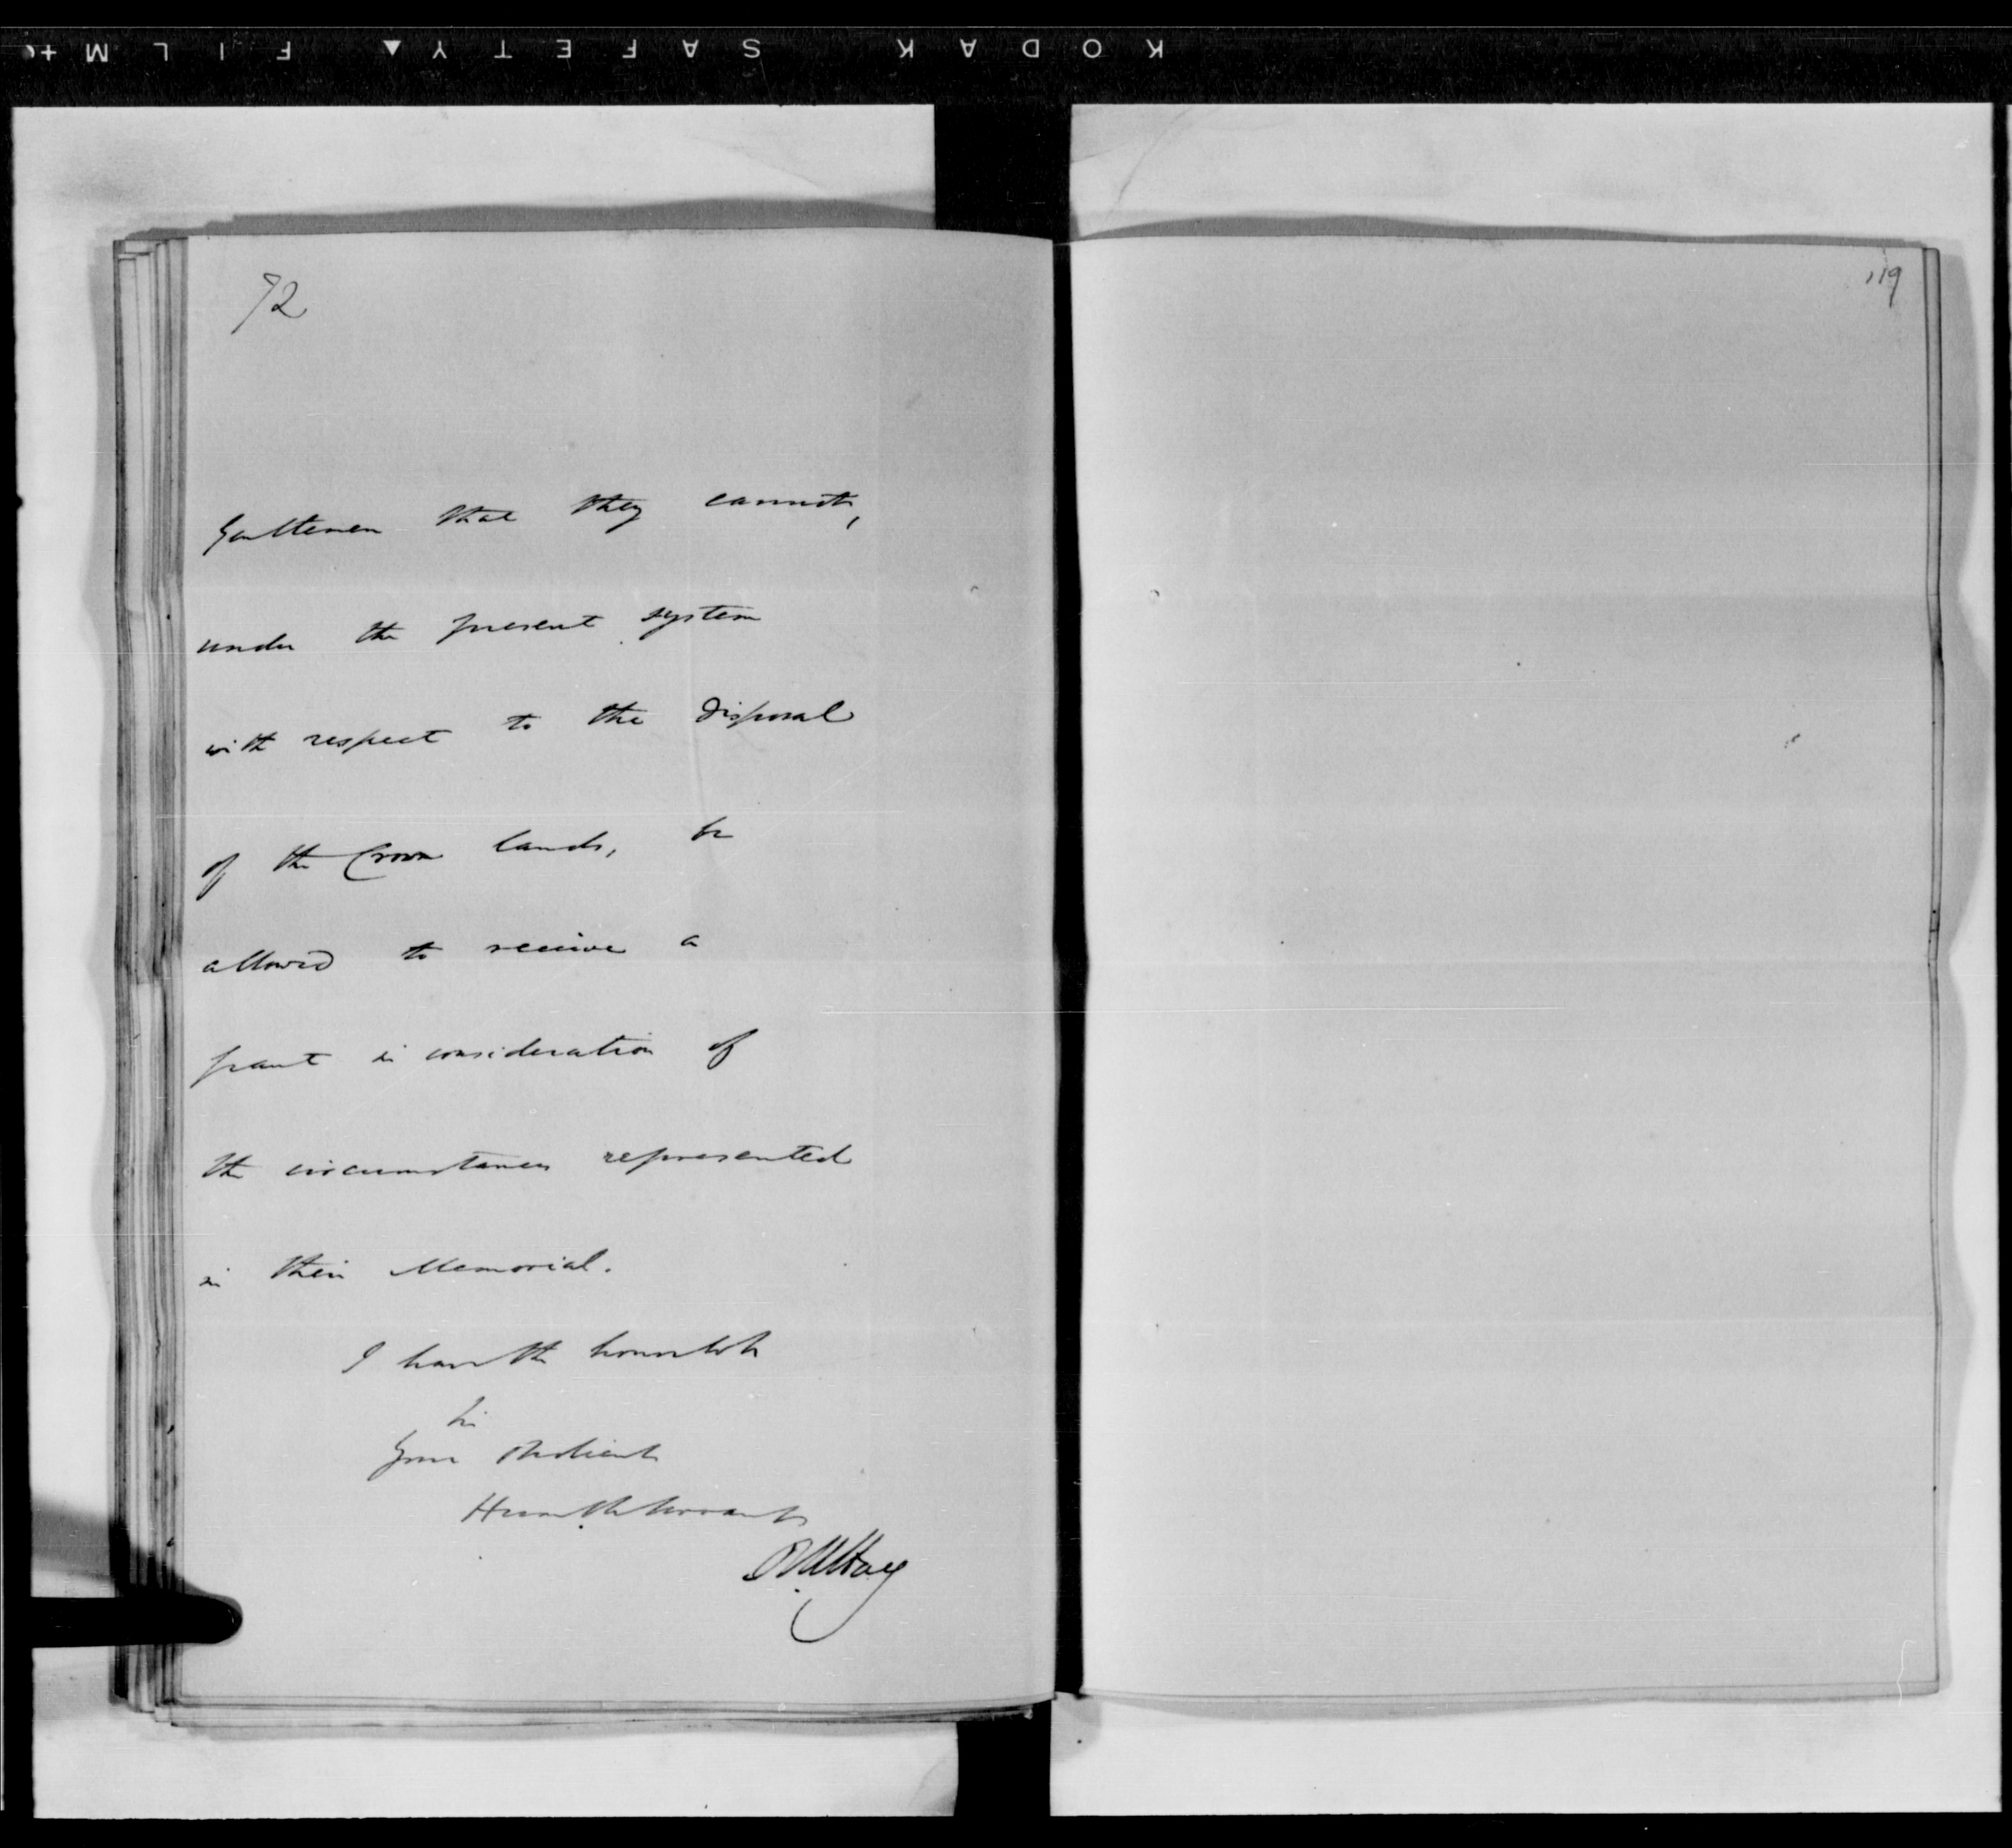 KODAK SAFETY FILM
72
Gentlemen that they cannot,
under the present system
with respect to the disposal
of the Crown lands, be
allowed to receive a
grant in consideration of
the circumstances represented
in their Memorial.
I have the honor to be
Sir
Your obedient
Humble servant
R W Hay
119